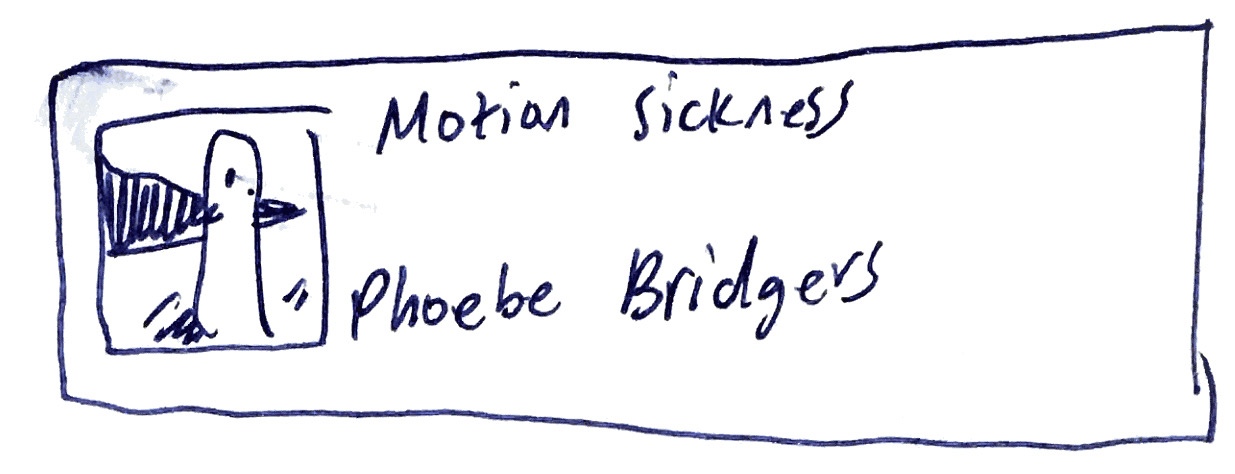 Motion Sickness
Phoebe Bridgers